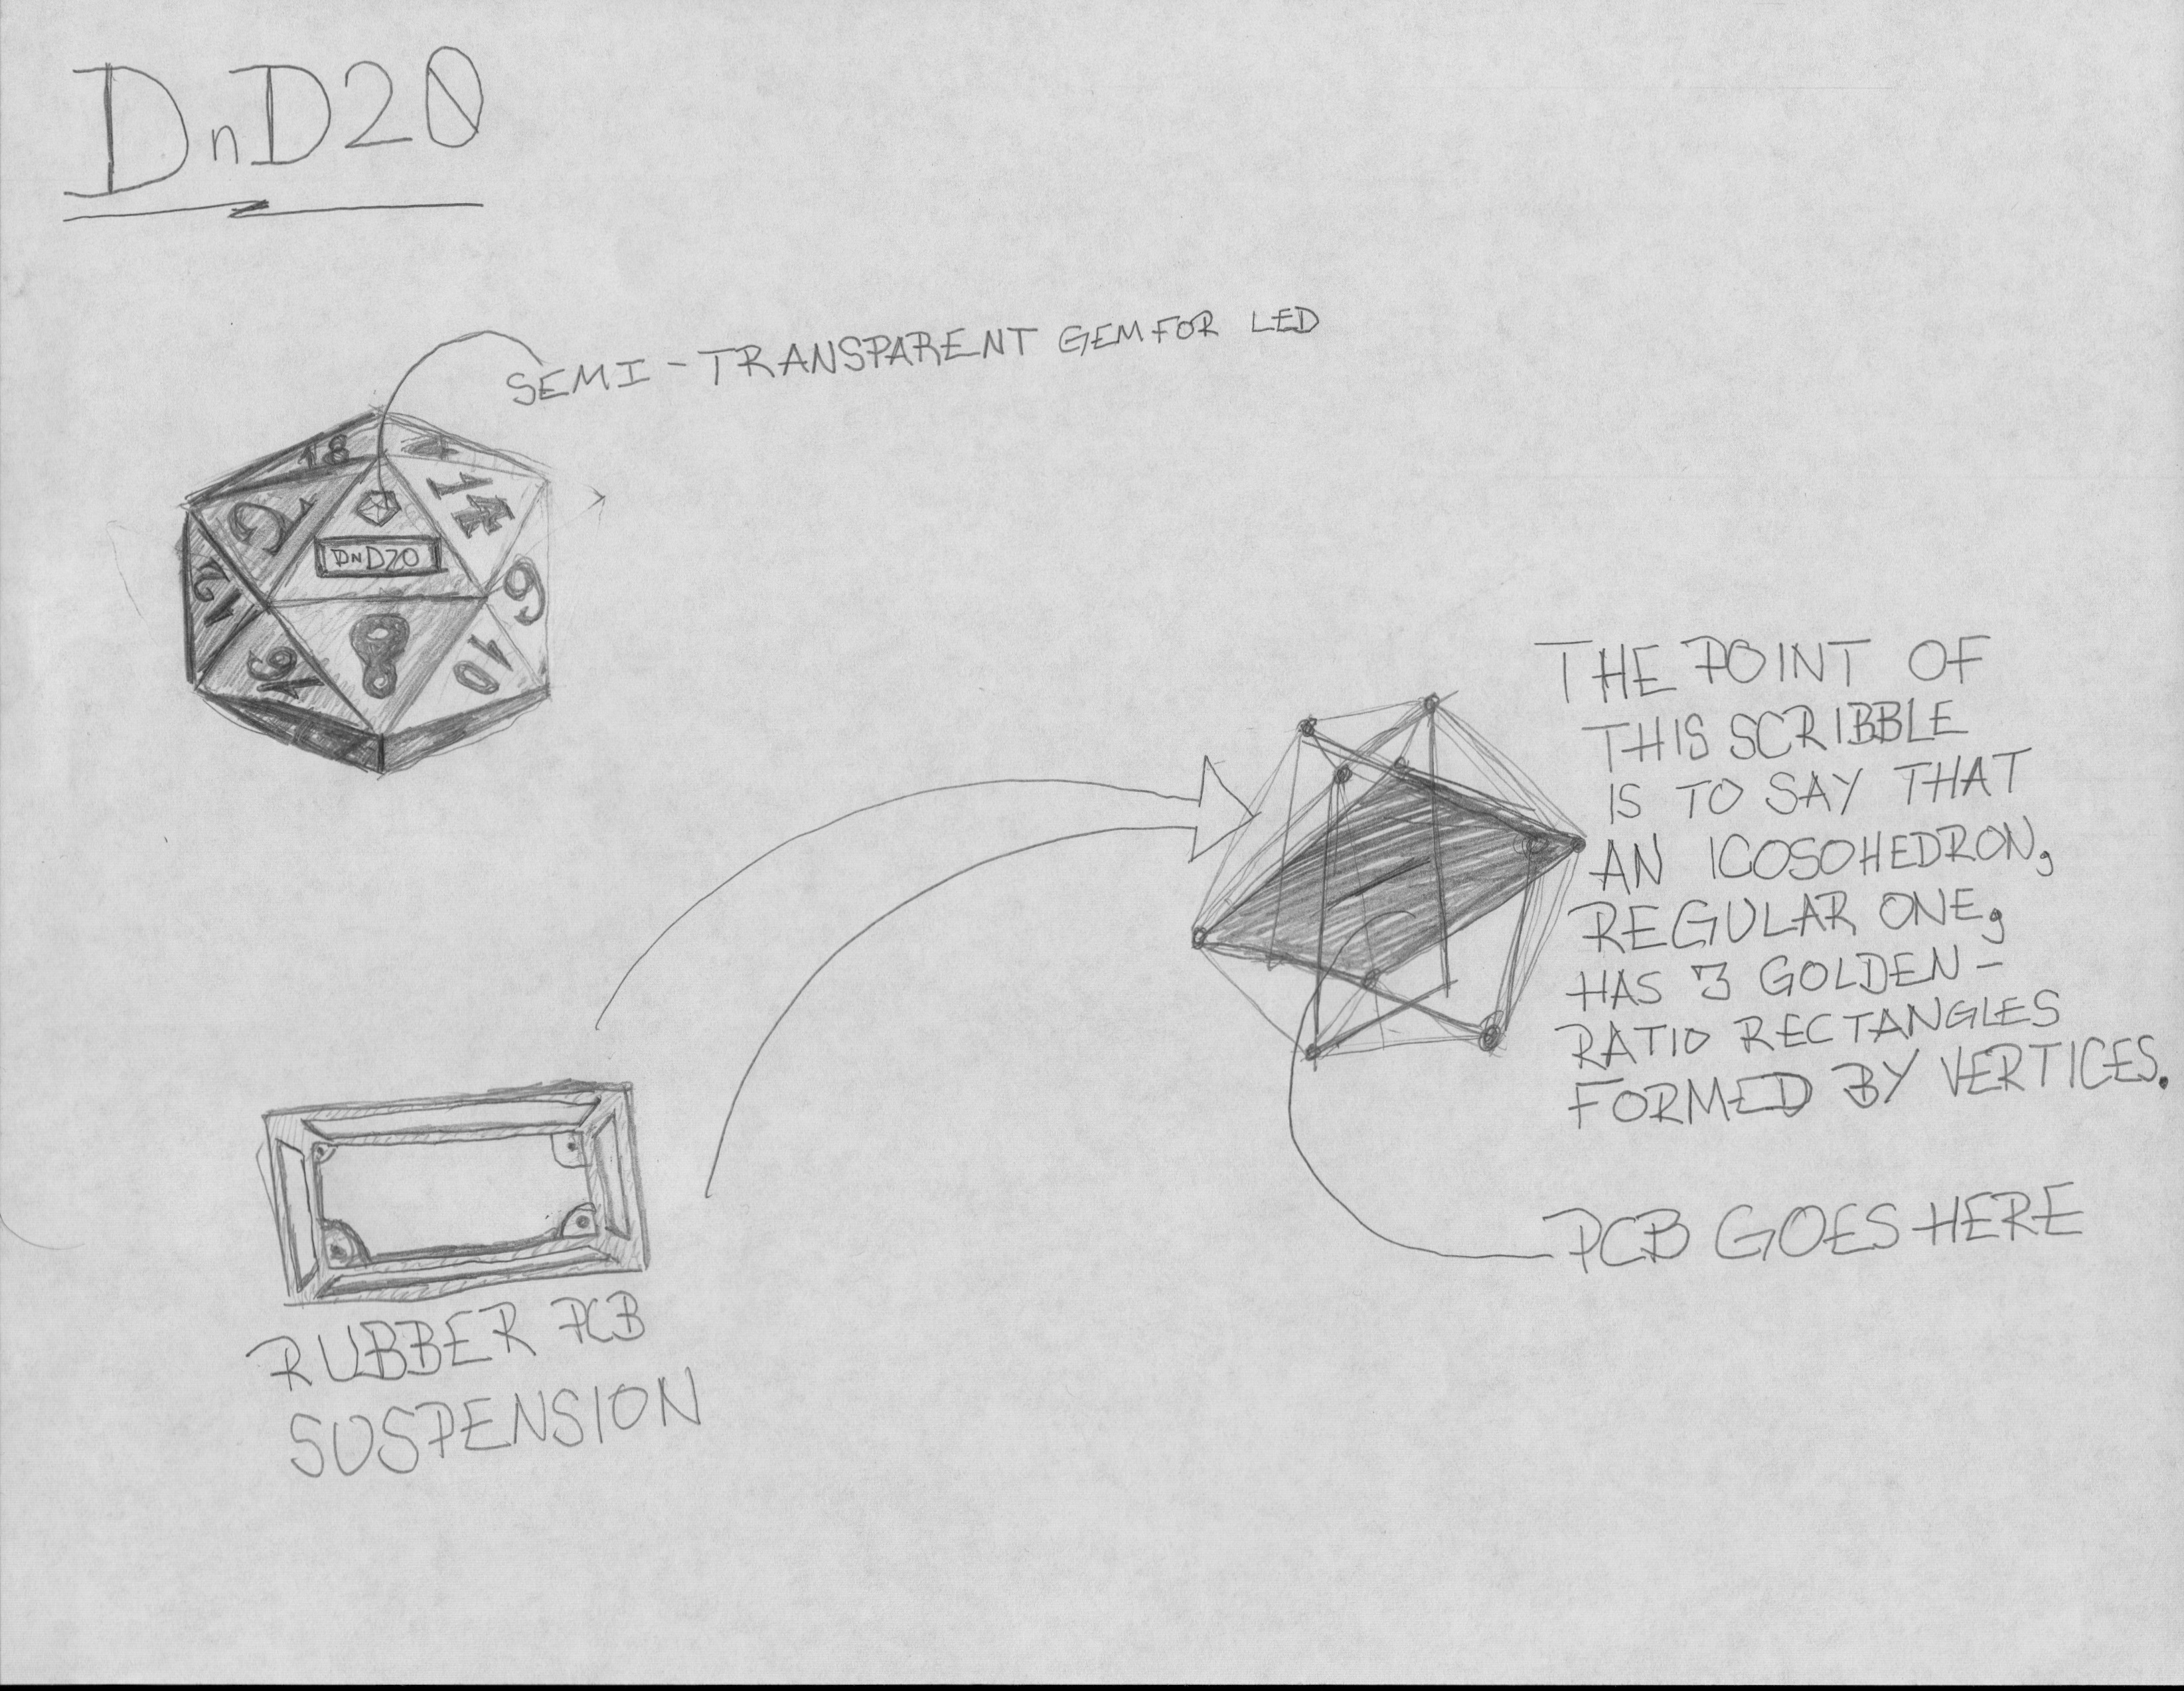 DnD20
SEMI-TRANSPARENT GEM FOR LED
18
2
14
DND20
12
9
16
8
10
THE POINT OF
THIS SCRIBBLE
IS TO SAY THAT
AN ICOSOHEDRON,
REGULAR ONE,
HAS 3 GOLDEN-
RATIO RECTANGLES
FORMED BY VERTICES.
PCB GOES HERE
RUBBER PCB
SUSPENSION